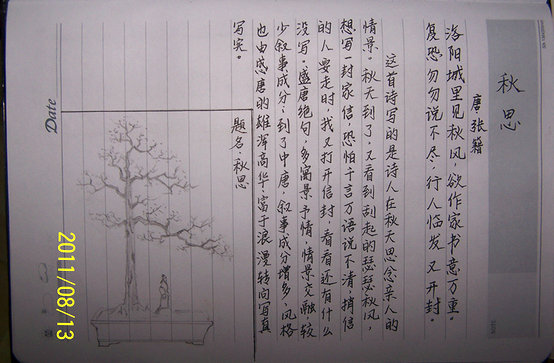 秋思
唐 张籍
洛阳城里见秋风，欲作家书意万重。
复恐匆匆说不尽，行人临发又开封。
这首诗写的是诗人在秋天思念亲人的
情景。秋天到了，又看到刮起的瑟瑟秋风，
想写一封家信，恐怕千言万语说不清，捎信
的人要走时，我又打开信封，看看还有什么
没写。盛唐绝句，多寓景予情，情景交融，较
少叙事成分；到了中唐，叙事成分增多，风格
也由盛唐的雄浑高华、富于浪漫转向写真
写实。
题名：秋思
Date
2011/08/13